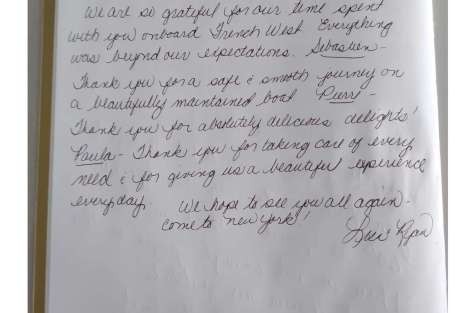 We are so grateful for our time spent
with you onboard French West. Everything
was beyond our expectations. Sebastien -
Thank you for a safe & smooth journey on
a beautifully maintained boat
Thank you for absolutely delicious delights!
Paula - Thank you for taking care of every
need & for giving us a beautiful experience
everyday. We hope to see you all again -
come to new york!
Ryan